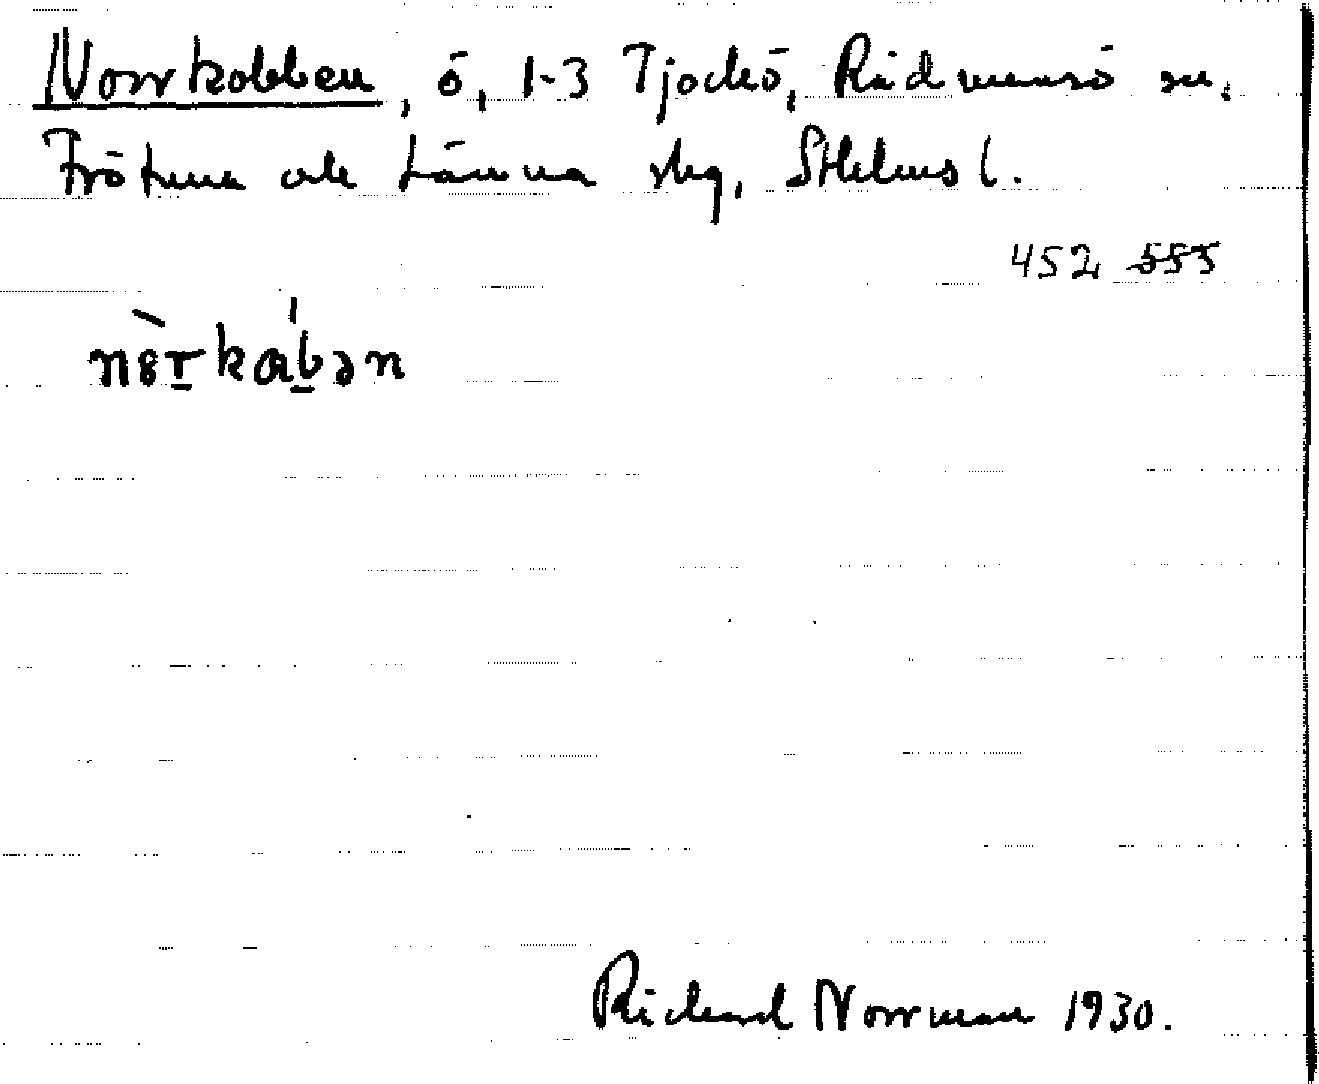 Norrkobben, ö, 1-3 Tjockö, Rådmansö sn.
Frötuna och Länna skg, Sthlms l.
452 555
nòrkábən
Richard Norrman 1930.